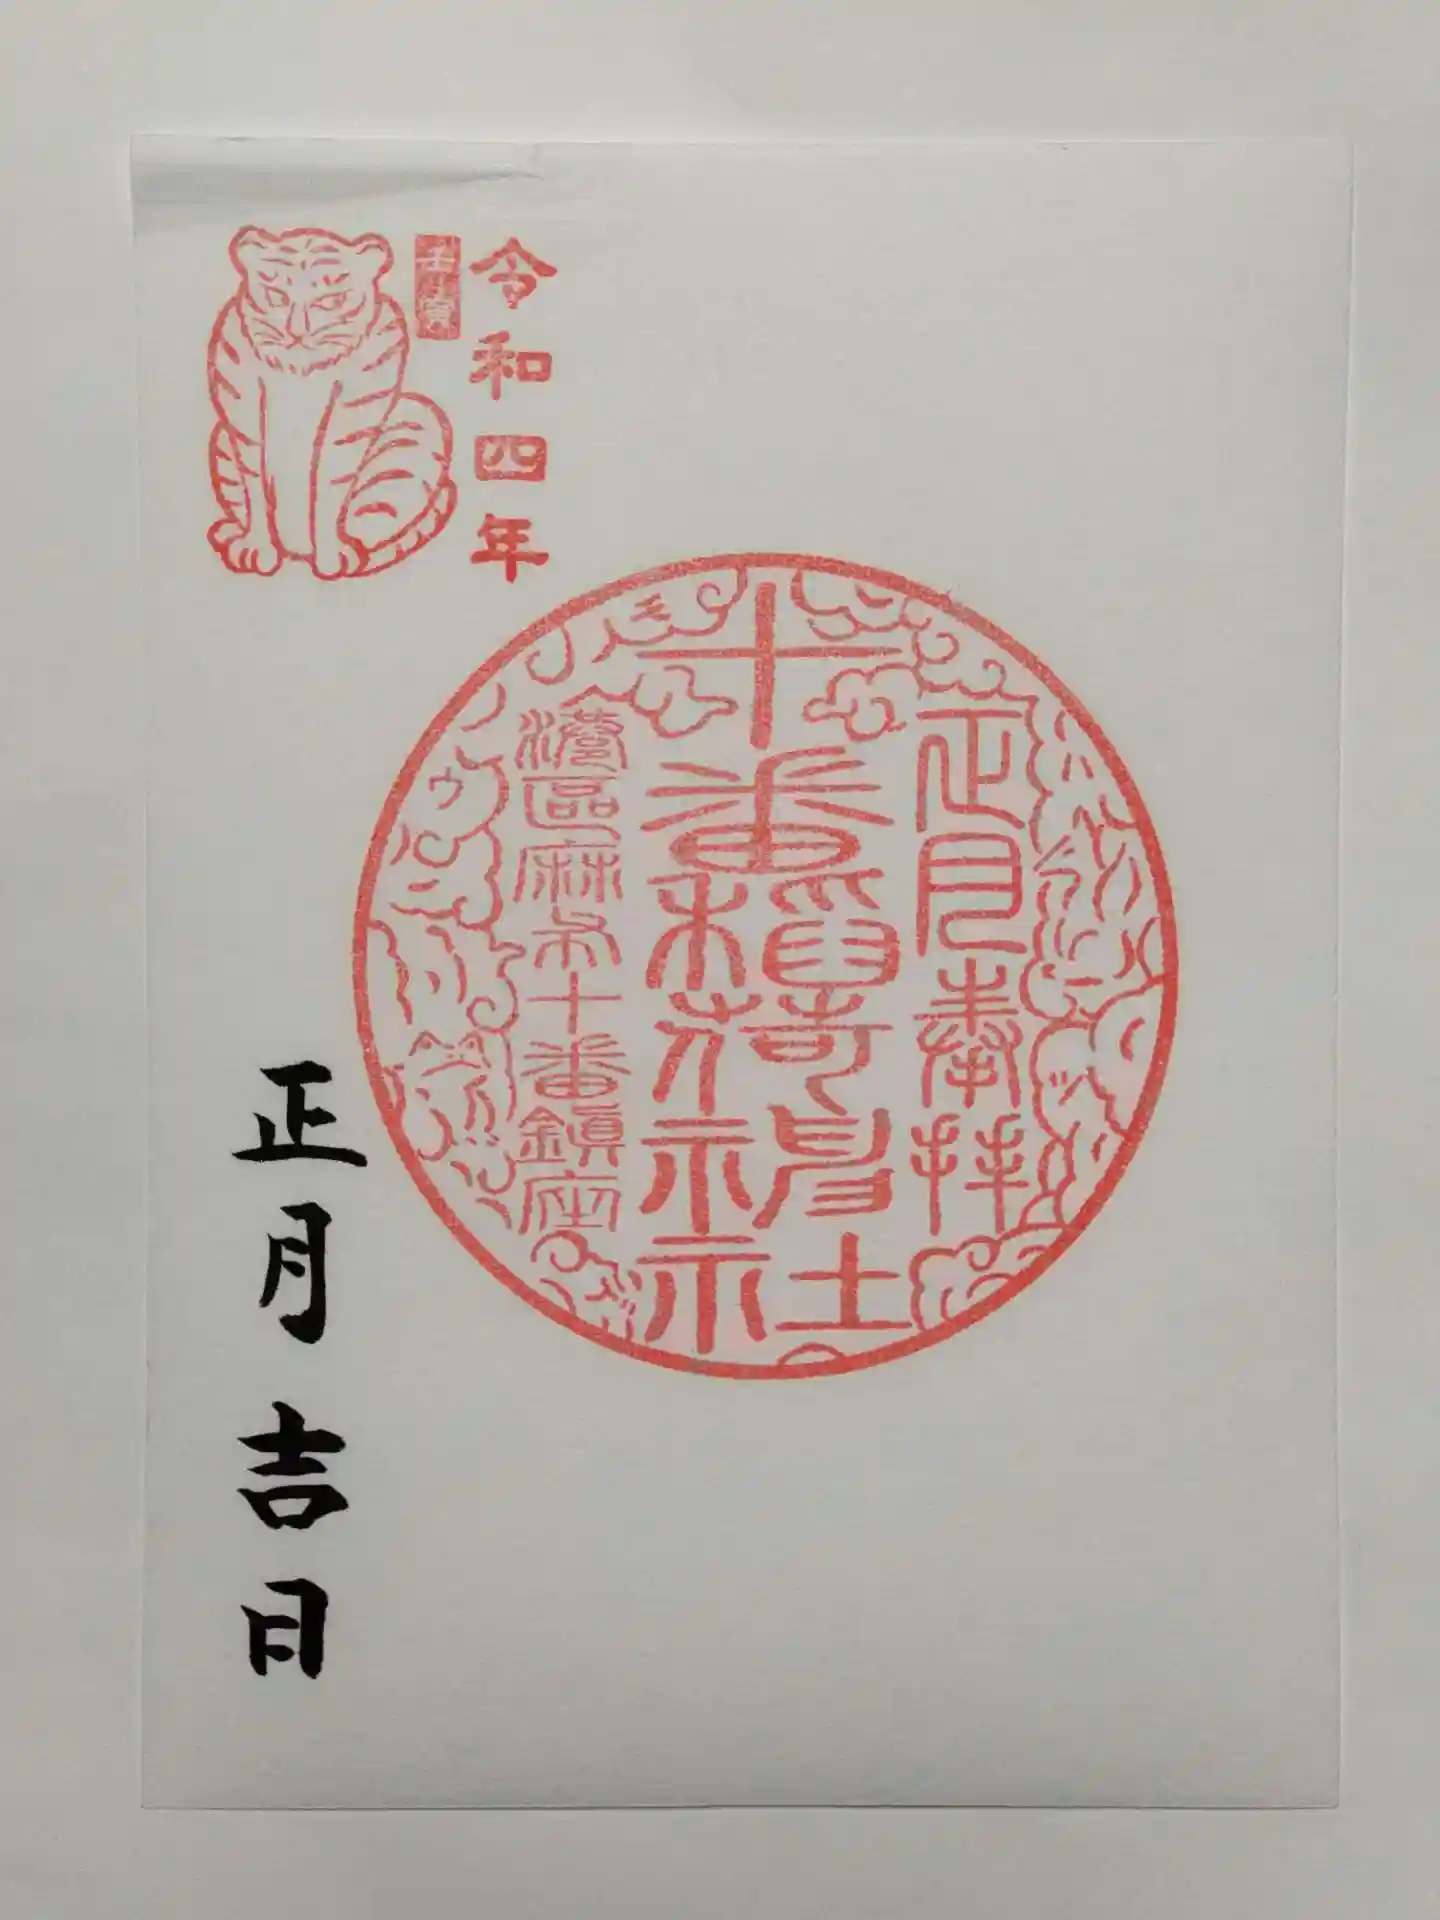 令和四年
壬寅
正月奉拝
十番稻荷神社
港區麻布十番鎮座
正月吉日